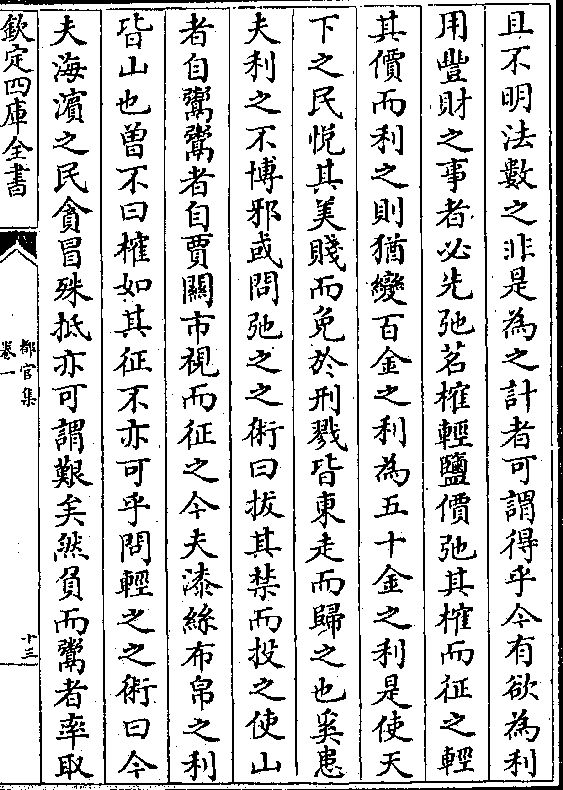 且不明法數之非是為之計者可謂得乎今有欲為利
用豐財之事者必先弛茗榷輕鹽價弛其榷而征之輕
其價而利之則猶變百金之利為五十金之利是使天
下之民悅其美賤而免於刑戮皆東走而歸之也奚患
夫利之不博邪或問弛之之術曰拔其禁而投之使山
者自鬻鬻者自賈關市視而征之今夫漆絲布帛之利
皆山也曾不曰榷如其征不亦可乎問輕之之術曰今
夫海濱之民貪冒殊抵亦可謂艱矣然負而鬻者率取
欽定四庫全書
都官集
卷一
十三